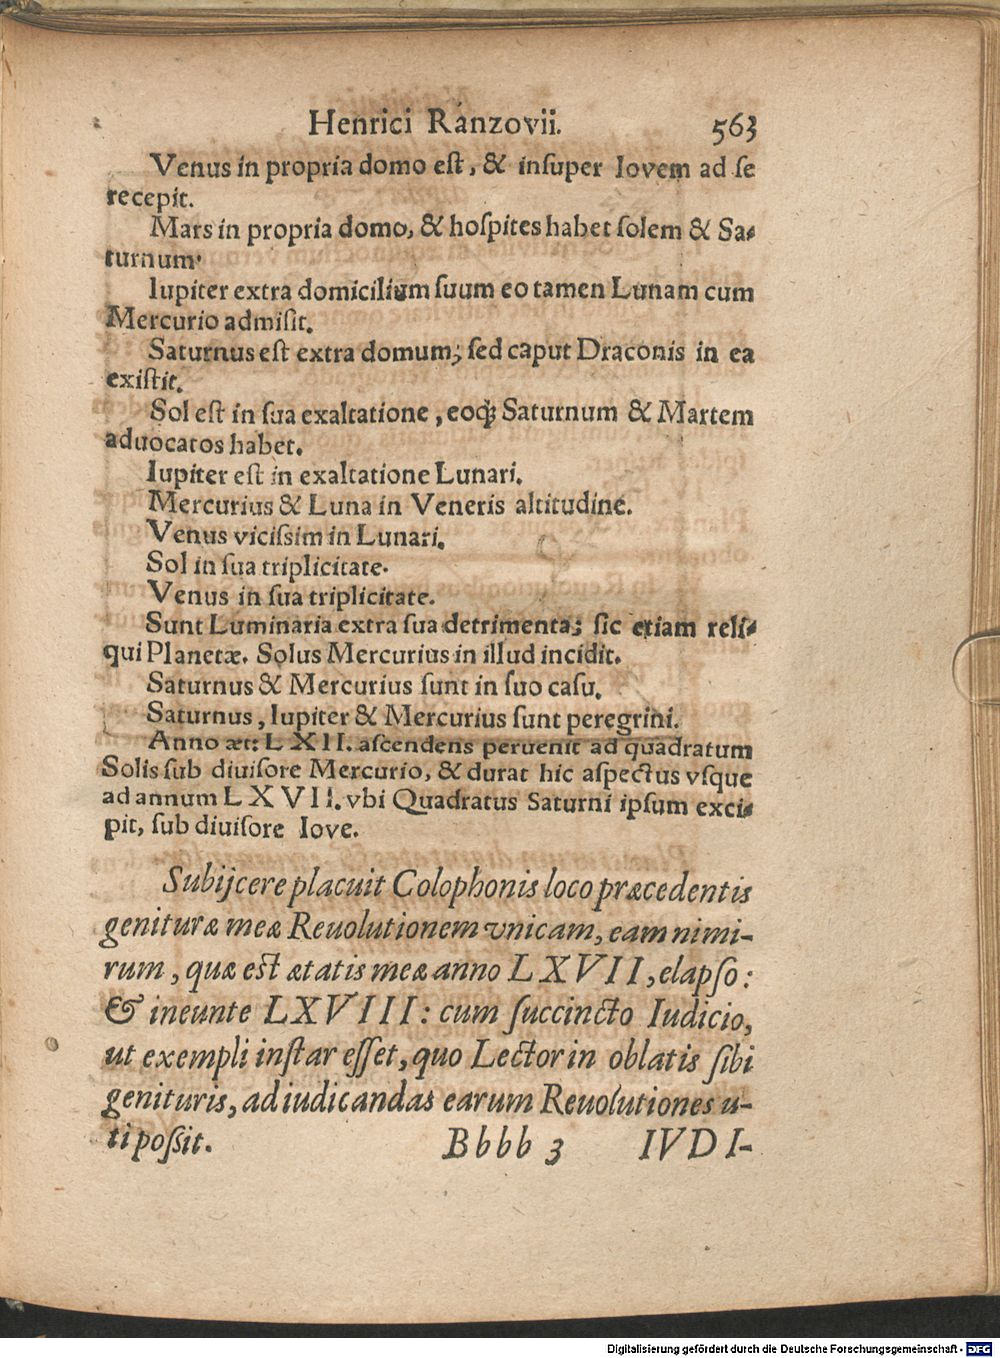 Henrici Ranzovii. 563
Venus in propria domo est, & inſuper Iovem ad ſe
recepit.
Mars in propria domo, & hoſpites habet ſolem & Sa-
turnum.
Iupiter extra domicilium ſuum eo tamen Lunam cum
Mercurio admiſit.
Saturnus eſt extra domum; ſed caput Draconis in ea
exiſtit.
Sol eſt in ſua exaltatione, eoq; Saturnum & Martem
aduocatos habet.
Iupiter eſt in exaltatione Lunari.
Mercurius & Luna in Veneris altitudine.
Venus viciſsim in Lunari.
Sol in ſua triplicitate.
Venus in ſua triplicitate.
Sunt Luminaria extra ſua detrimenta; ſic etiam reli-
qui Planetæ. Solus Mercurius in illud incidit.
Saturnus & Mercurius ſunt in ſuo caſu.
Saturnus, Iupiter & Mercurius ſunt peregrini.
Anno æt: LXII. aſcendens peruenit ad quadratum
Solis ſub diuiſore Mercurio, & durat hic aſpectus vſque
ad annum LXVII. vbi Quadratus Saturni ipſum exci-
pit, ſub diuiſore Iove.
Subijcere placuit Colophonis loco præcedentis
genituræ meæ Reuolutionem vnicam, eam nimi-
rum, quæ eſt ætatis meæ anno LXVII, elapſo:
& ineunte LXVIII: cum ſuccincto Iudicio,
ut exempli inſtar eſſet, quo Lector in oblatis ſibi
genituris, ad iudicandas earum Reuolutiones u-
ti poſsit. Bbbb 3 IVDI-
Digitalisierung gefördert durch die Deutsche Forschungsgemeinschaft - DFG